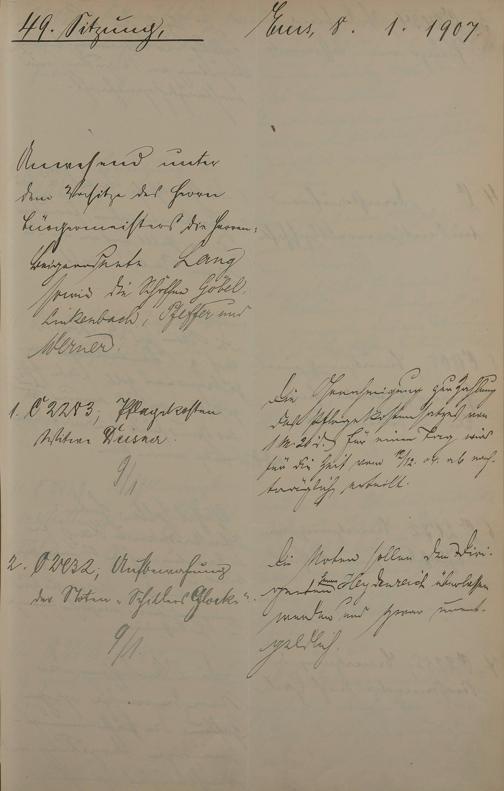 49. Sitzung.
Ems, 8. 1. 1907.
Anwesend unter
dem Vorsitze des Herrn
Bürgermeisters die Herren:
Beigeordnete Lang
sowie die Schöffen Göbel,
Linkenbach, Pfeffer und
Werner.
1. C 2283; Pflegekosten
Witwe Weisner.
9/1
Die Genehmigung zur Zahlung
des Pflegekostensatzes von
1 M 20 d. für einen Tag wird
für die Zeit vom 12/12. 06. ab nach-
träglich erteilt.
2. C 2832; Aufbewahrung
der Noten „Schillers Glocke".
9/1.
Die Noten sollen dem Diri-
genten Herrn Heydenreich überlassen
werden und zwar unent-
geldlich.